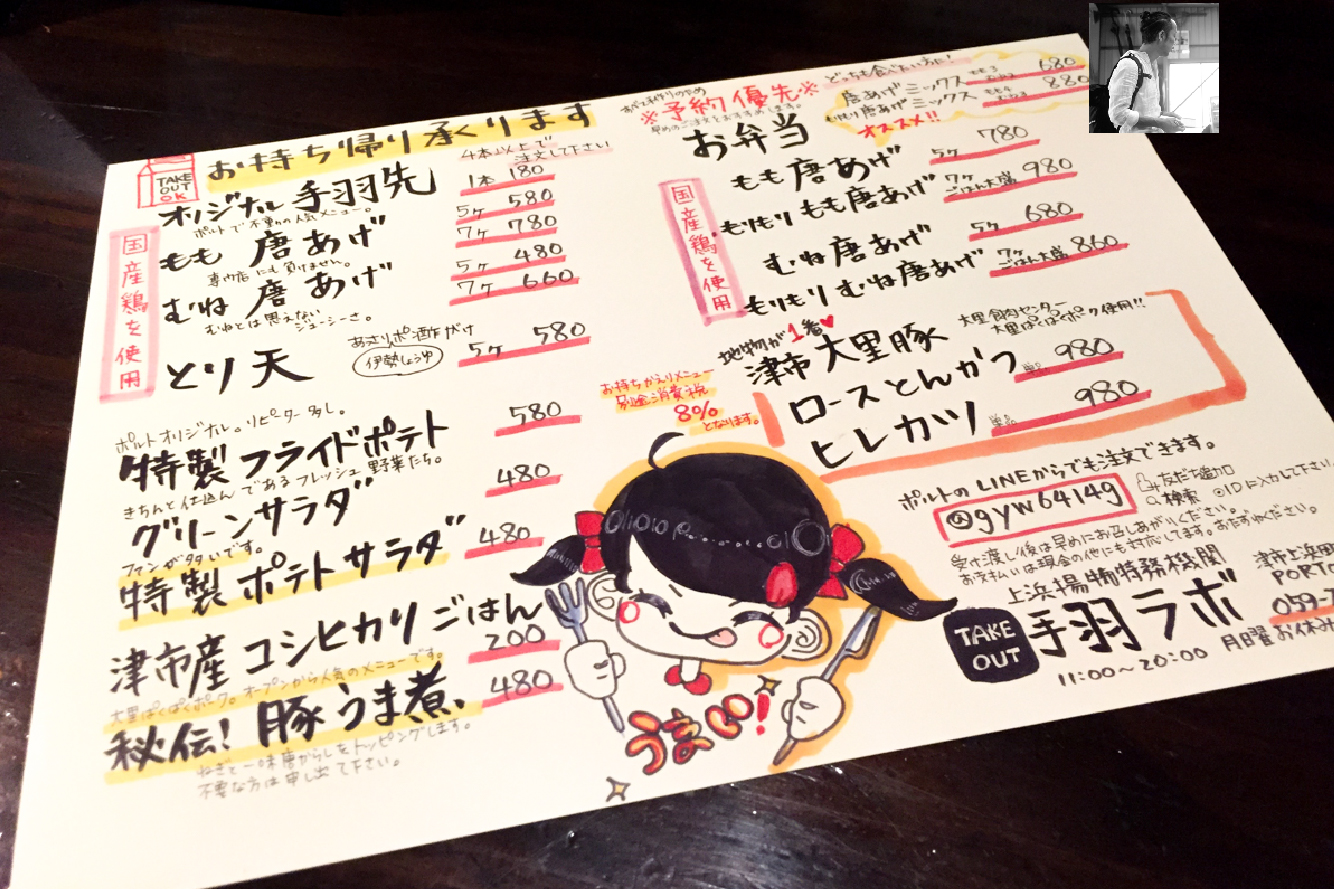 お持ち帰り承ります
TAKE
OUT
OK
4本以上で
注文して下さい
オリジナル手羽先
1本 180
ポルトで不動の人気メニュー。
国産鶏を使用
もも 唐あげ
5ヶ 580
7ヶ 780
専門店にも負けません。
むね 唐あげ
5ヶ 480
7ヶ 660
むねとは思えない
ジューシーさ。
とり天
あっさりポン酢がけ
伊勢しょうゆ
5ヶ 580
ポルトオリジナル。リピーター多し。
特製 フライドポテト
580
きちんと仕込んであるフレッシュ野菜たち。
グリーンサラダ
480
ファンが多いです。
特製 ポテトサラダ
480
津市産 コシヒカリ ごはん
200
大里ぱくぱくポーク。オープンから人気のメニューです。
秘伝! 豚うま煮
480
ねぎと一味唐がらしをトッピングします。
不要な方は申し出て下さい。
※予約優先※
早めのご注文をおすすめします。
どっちも食べたい方に!
唐あげミックス
680
唐あげミックス
880
オススメ!!
お弁当
国産鶏を使用
もも唐あげ
5ヶ 780
もりもり もも唐あげ
7ヶ 980
ごはん大盛
むね唐あげ
5ヶ 680
もりもり むね唐あげ
7ヶ 860
ごはん大盛
地物が1番♥
津市 大里豚
大里食肉センター
大里ぱくぱくポーク使用!!
ロースとんかつ
単品 980
ヒレカツ
単品 980
お持ちかえりメニュー
別途消費税
8%
となります。
ポルトのLINEからでも注文できます。
@gyw6414g
友だち追加
検索 @IDに入力して下さい
受け渡し後は早めにお召しあがりください。
お支払いは現金の他にも対応してます。おたずねください。
上浜揚物特務機関
TAKE
OUT
手羽ラボ
11:00~20:00
月曜お休み
津市上浜町
PORTO
059-7
うまい!